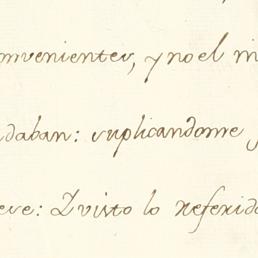 nvenientes, y no el in
daban: suplicandome
eve: Quisto lo referido